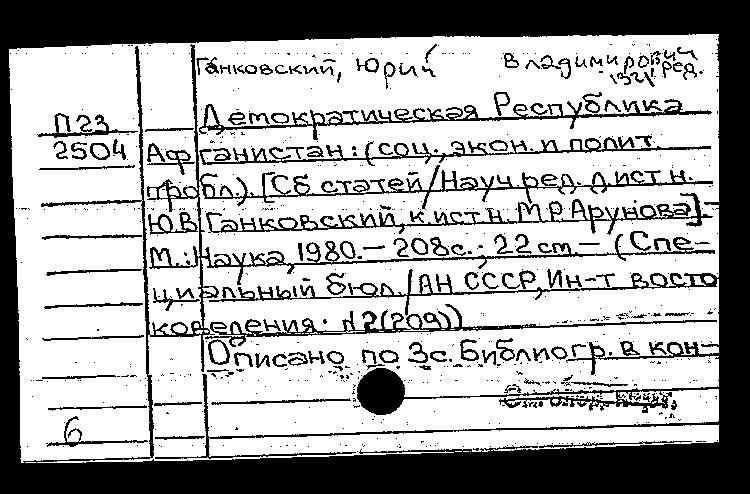 Ганковский, Юрий Владимирович
ред.
П23 Демократическая Республика
2504 Афганистан: (соц., экон. и полит.
пробл.). [Сб статей/Науч ред. д ист н.
Ю.В Ганковский, к.ист н. М Р Арунова].–
М.: Наука, 1980.– 208с.; 22 cm.– (Спе-
циальный бюл./АН СССР, Ин-т восто
коведения. №2(209))
Описано по Зс. Библиогр. в кон-
6